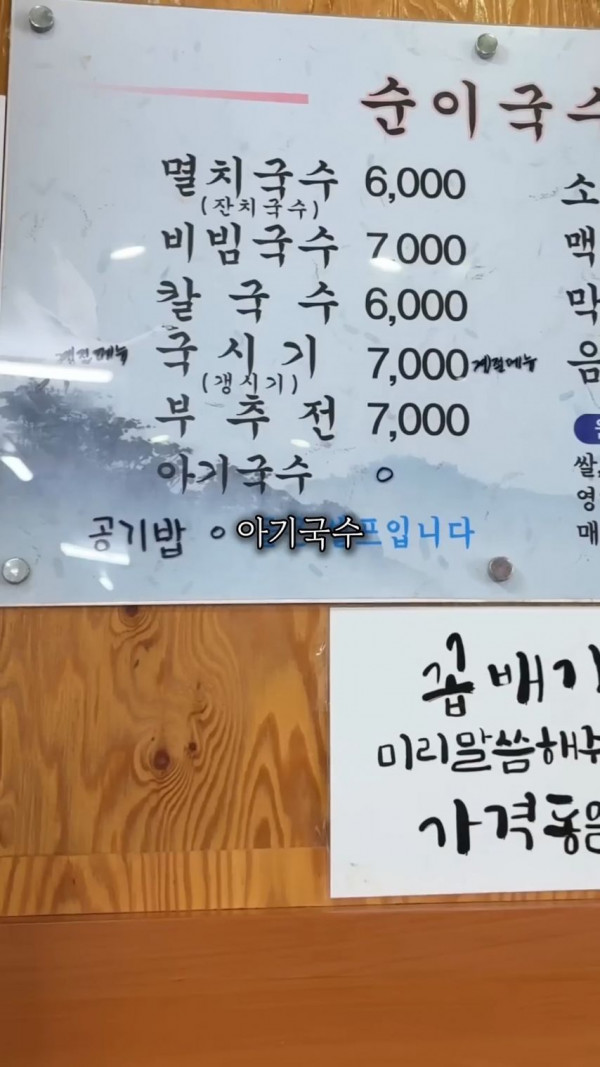 순이국수
멸치국수 6,000
(잔치국수)
비빔국수 7,000
칼국수 6,000
계절메뉴 국시기 7,000 계절메뉴
(갱시기)
부추전 7,000
아기국수 0
공기밥 0
아기국수
입니다
소
맥
막
음
쌀
영
매
곱배기
미리말씀해주
가격동일